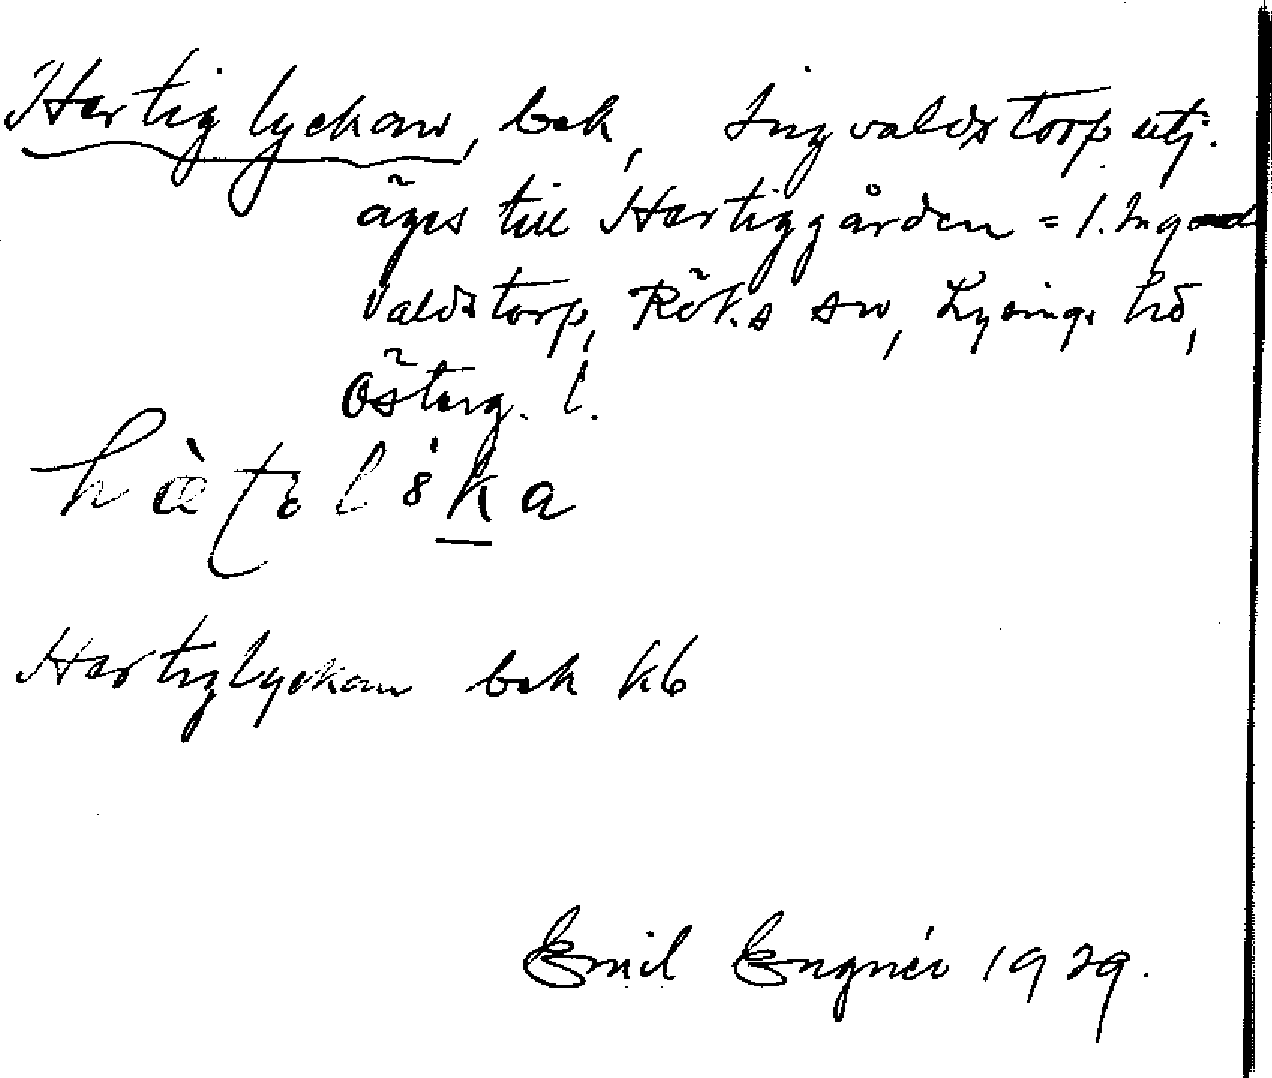 Hertiglyckan, bek, Ingvaldstorp utj.
äges till Hertiggården = 1. Ing
valdstorp, Röks sn, Lysings hd,
Österg. l.
Hertiglyckan bek kb
Emil Engnér 1929.